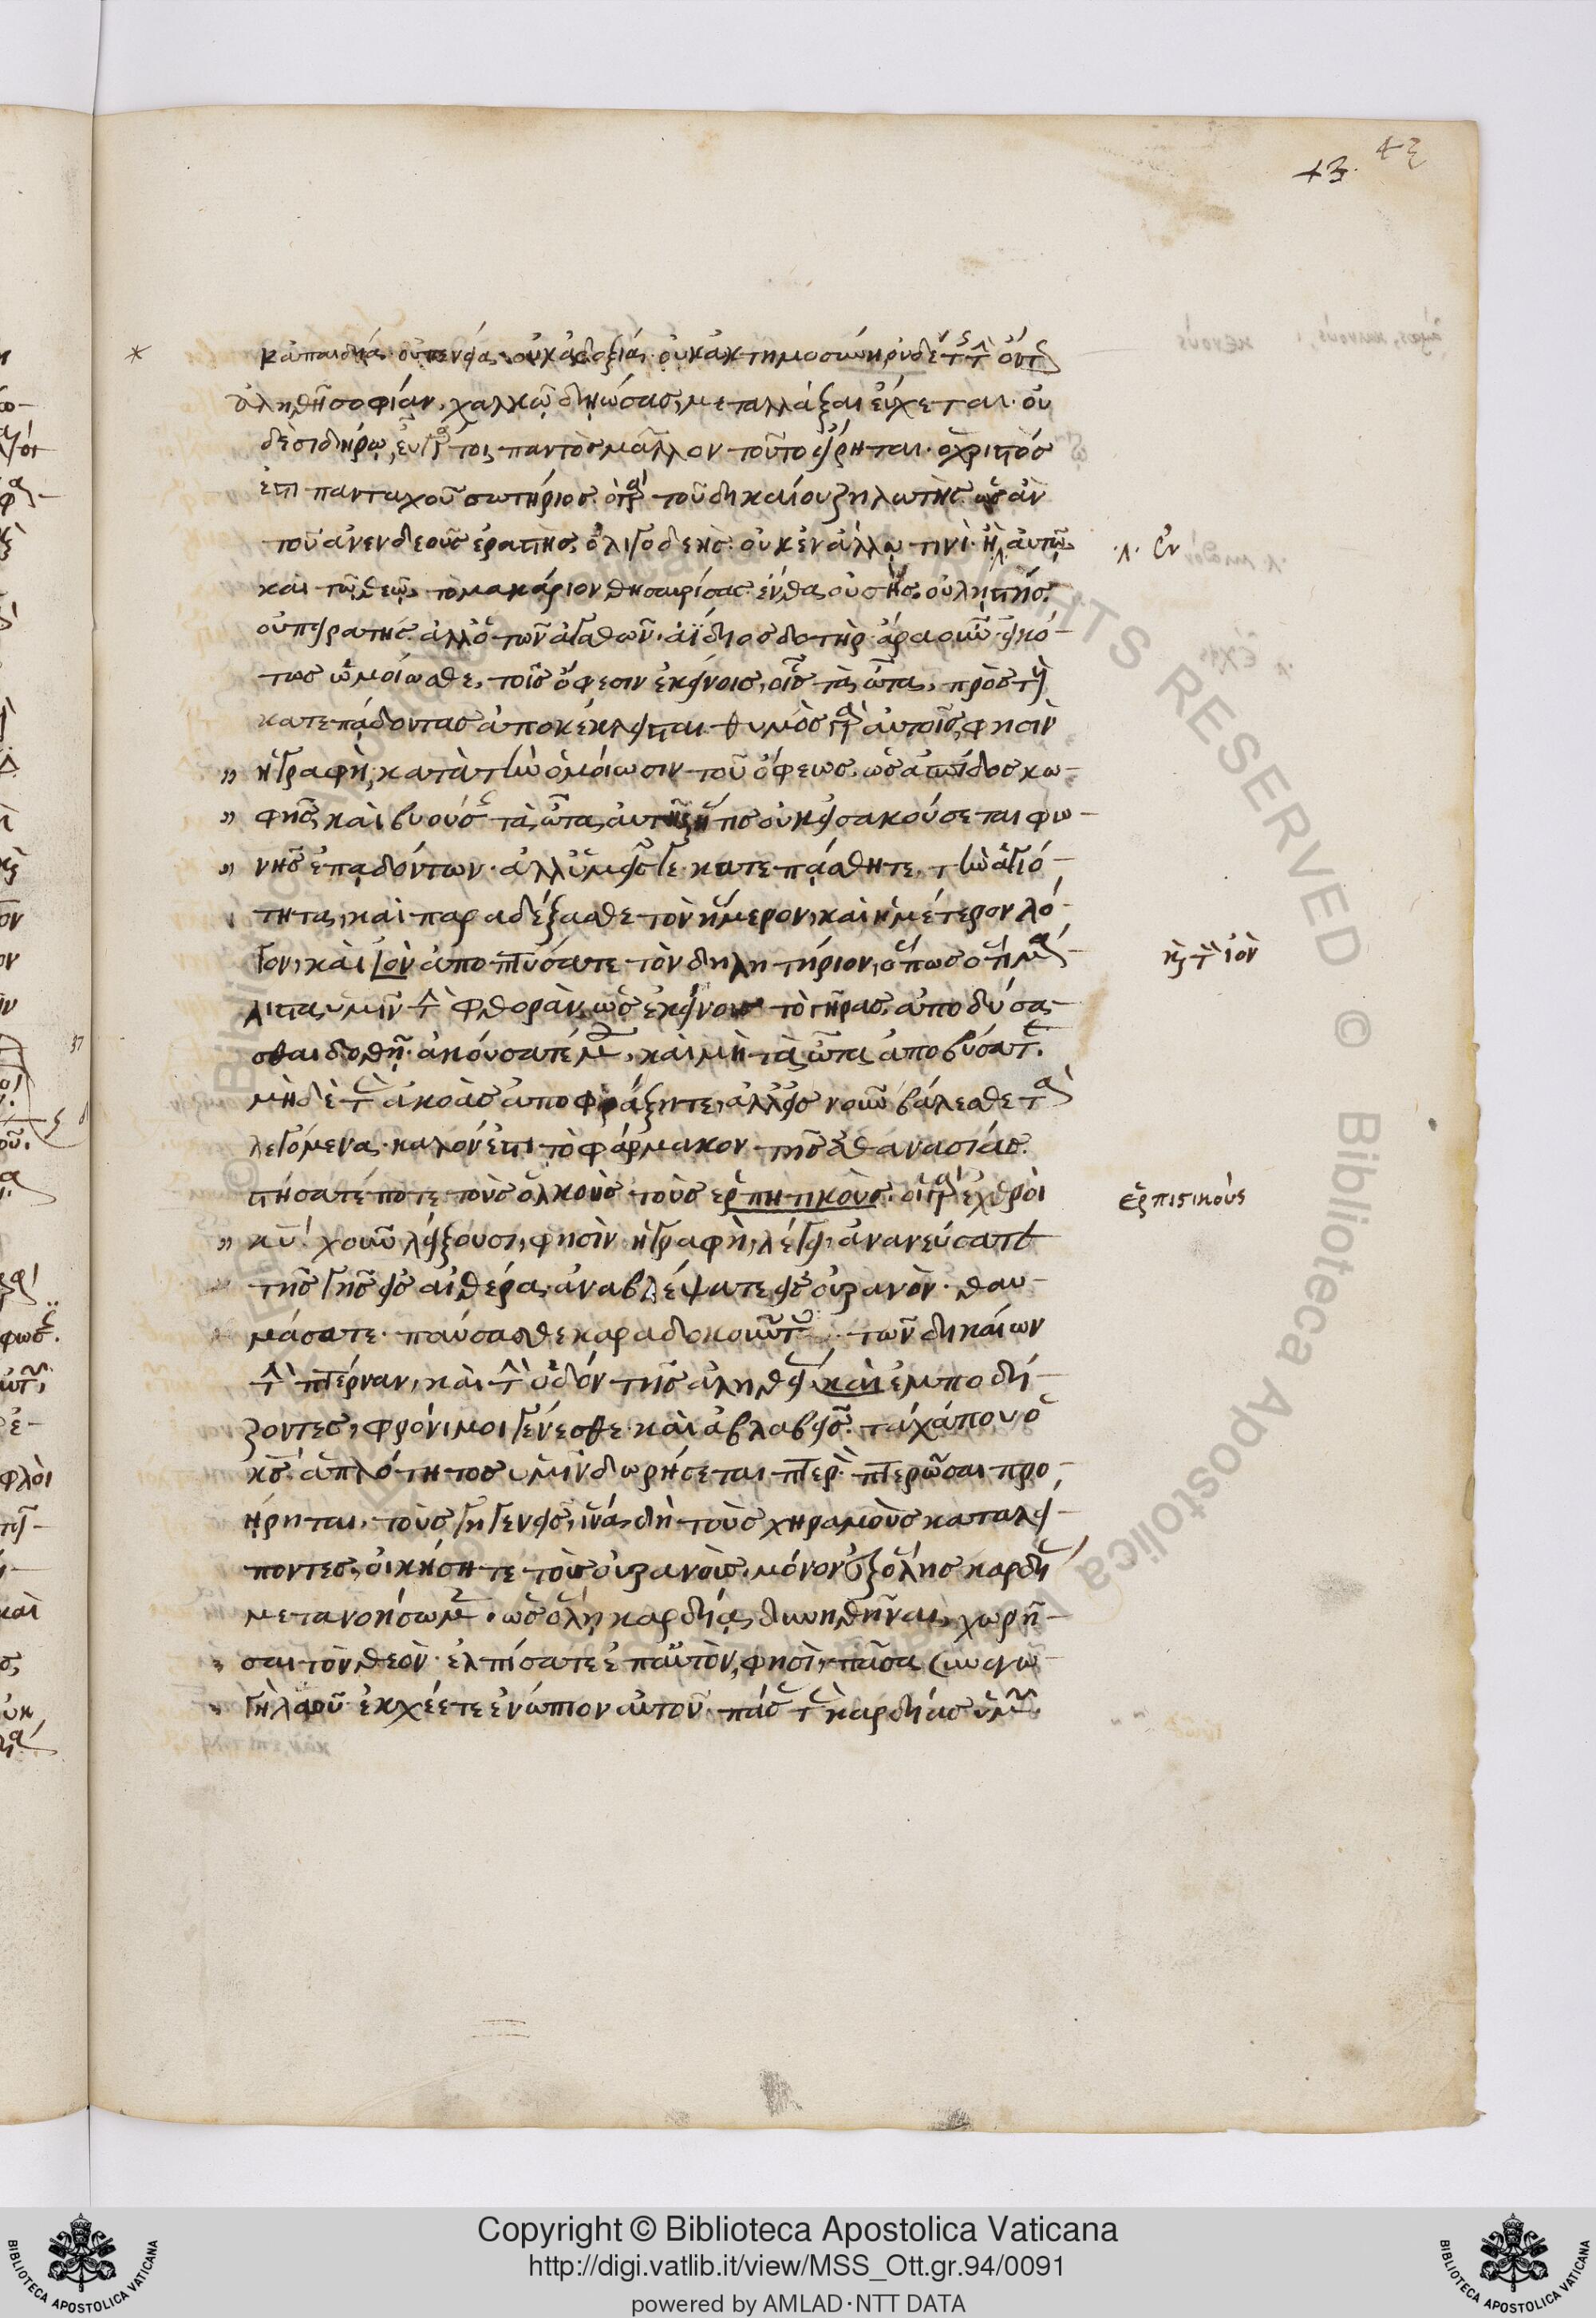 43. 43
κ ἀπαιδίας· οὐ πενίας· οὐκ ἀδοξίας· οὐκ ἀκτημοσύνη, οὐδὲ τ τ ὄντ
ἀληθῆ σοφίαν, χαλκῷ δηώσας, μεταλλάξαι εὔχεται· οὐ
δὲ σιδήρῳ, εὖ τοι παντὸς μᾶλλον τοῦτο εἴρηται. ὁ χριστός
ἐστι πανταχοῦ σωτήριος. ὁ γὰρ τοῦ δικαίου ζηλωτὴς ὡς ἂν
τοῦ ἀνενδεοῦς ἐραστὴς, ὀλιγοδεής· οὐκ ἐν ἄλλῳ τινὶ· ἢ αὐτῷ
·λ· ἐν
καὶ τῷ θεῷ, τὸ μακάριον θησαυρίσας· ἔνθα οὐ σής, οὐ λῃστής,
οὐ πειρατής· ἀλλ' ὁ τῶν ἀγαθῶν ἀΐδιος δοτήρ· ἆρα οὖν εἰκό-
τως ὡμοίωσθε, τοῖς ὄφεσιν ἐκείνοις, οἷς τὰ ὦτα, πρὸς τοὺς
κατεπᾴδοντας ἀποκέκλεισται· θυμὸς γὰρ αὐτοῖς, φησὶν
ἡ γραφὴ, κατὰ τὴν ὁμοίωσιν τοῦ ὄφεως, ὡς ἀσπίδος κω-
φῆς, καὶ βυούσης τὰ ὦτα αὐτῆς, ἥτις οὐκ εἰσακούσεται φω-
νῆς ἐπᾳδόντων. ἀλλ' ὑμεῖς γε κατεπᾴσθητε, τὴν ἁγιό-
τητα, καὶ παραδέξασθε τὸν ἥμερον, καὶ ἡμέτερον λό-
γον, καὶ ἰὸν ἀποπτύσατε τὸν δηλητήριον, ὅπως ὅτι μά-
κ τ ἰὸν
λιστα ὑμῖν τὴν φθορὰν, ὡς ἐκείνοις τὸ γῆρας, ἀποδύσα-
σθαι δοθῇ. ἀκούσατέ μου, καὶ μὴ τὰ ὦτα ἀποβύσατε.
μηδὲ τὰς ἀκοὰς ἀποφράξητε, ἀλλ' εἰς νοῦν βάλεσθε τὰ
λεγόμενα. καλόν ἐστι τὸ φάρμακον τῆς ἀθανασίας.
στήσατέ ποτε τοὺς ὁλκοὺς τοὺς ἑρπητικούς. οἱ γὰρ ἐχθροὶ
ἑρπιστικούς
κυ. χοῦν λείξουσι, φησὶν ἡ γραφὴ, λέγει, ἀνανεύσατε
τῆς γῆς εἰς αἰθέρα, ἀναβλέψατε εἰς οὐρανόν. θαυ-
μάσατε. παύσασθε καραδοκοῦντες τῶν δικαίων
τὴν πτέρναν, καὶ τὴν ὁδὸν τῆς ἀληθείας καὶ ἐμποδί-
ζοντες, φρόνιμοι γένεσθε καὶ ἀβλαβεῖς. τάχα που ὁ
κς ἁπλότητος ὑμῖν δωρήσεται πτερ. πτερῶσαι προ-
ῄρηται, τοὺς γηγενεῖς, ἵνα δὴ τοὺς χηραμοὺς καταλεί-
ποντες, οἰκήσητε τοὺς οὐρανούς, μόνον ἐξ ὅλης καρδίας
μετανοήσωμεν, ὡς ὅλῃ καρδίᾳ δυνηθῆναι, χωρῆ-
σαι τὸν θεόν. ἐλπίσατε ἐπ' αὐτὸν, φησὶ, πᾶσα συναγω-
γὴ λαοῦ ἐκχέετε ἐνώπιον αὐτοῦ· πάσ τ καρδίας ὑμῶν.
© Biblioteca Apostolica Vaticana ALL RIGHTS RESERVED
Copyright © Biblioteca Apostolica Vaticana
http://digi.vatlib.it/view/MSS_Ott.gr.94/0091
powered by AMLAD·NTT DATA
BIBLIOTECA APOSTOLICA VATICANA
BIBLIOTECA APOSTOLICA VATICANA